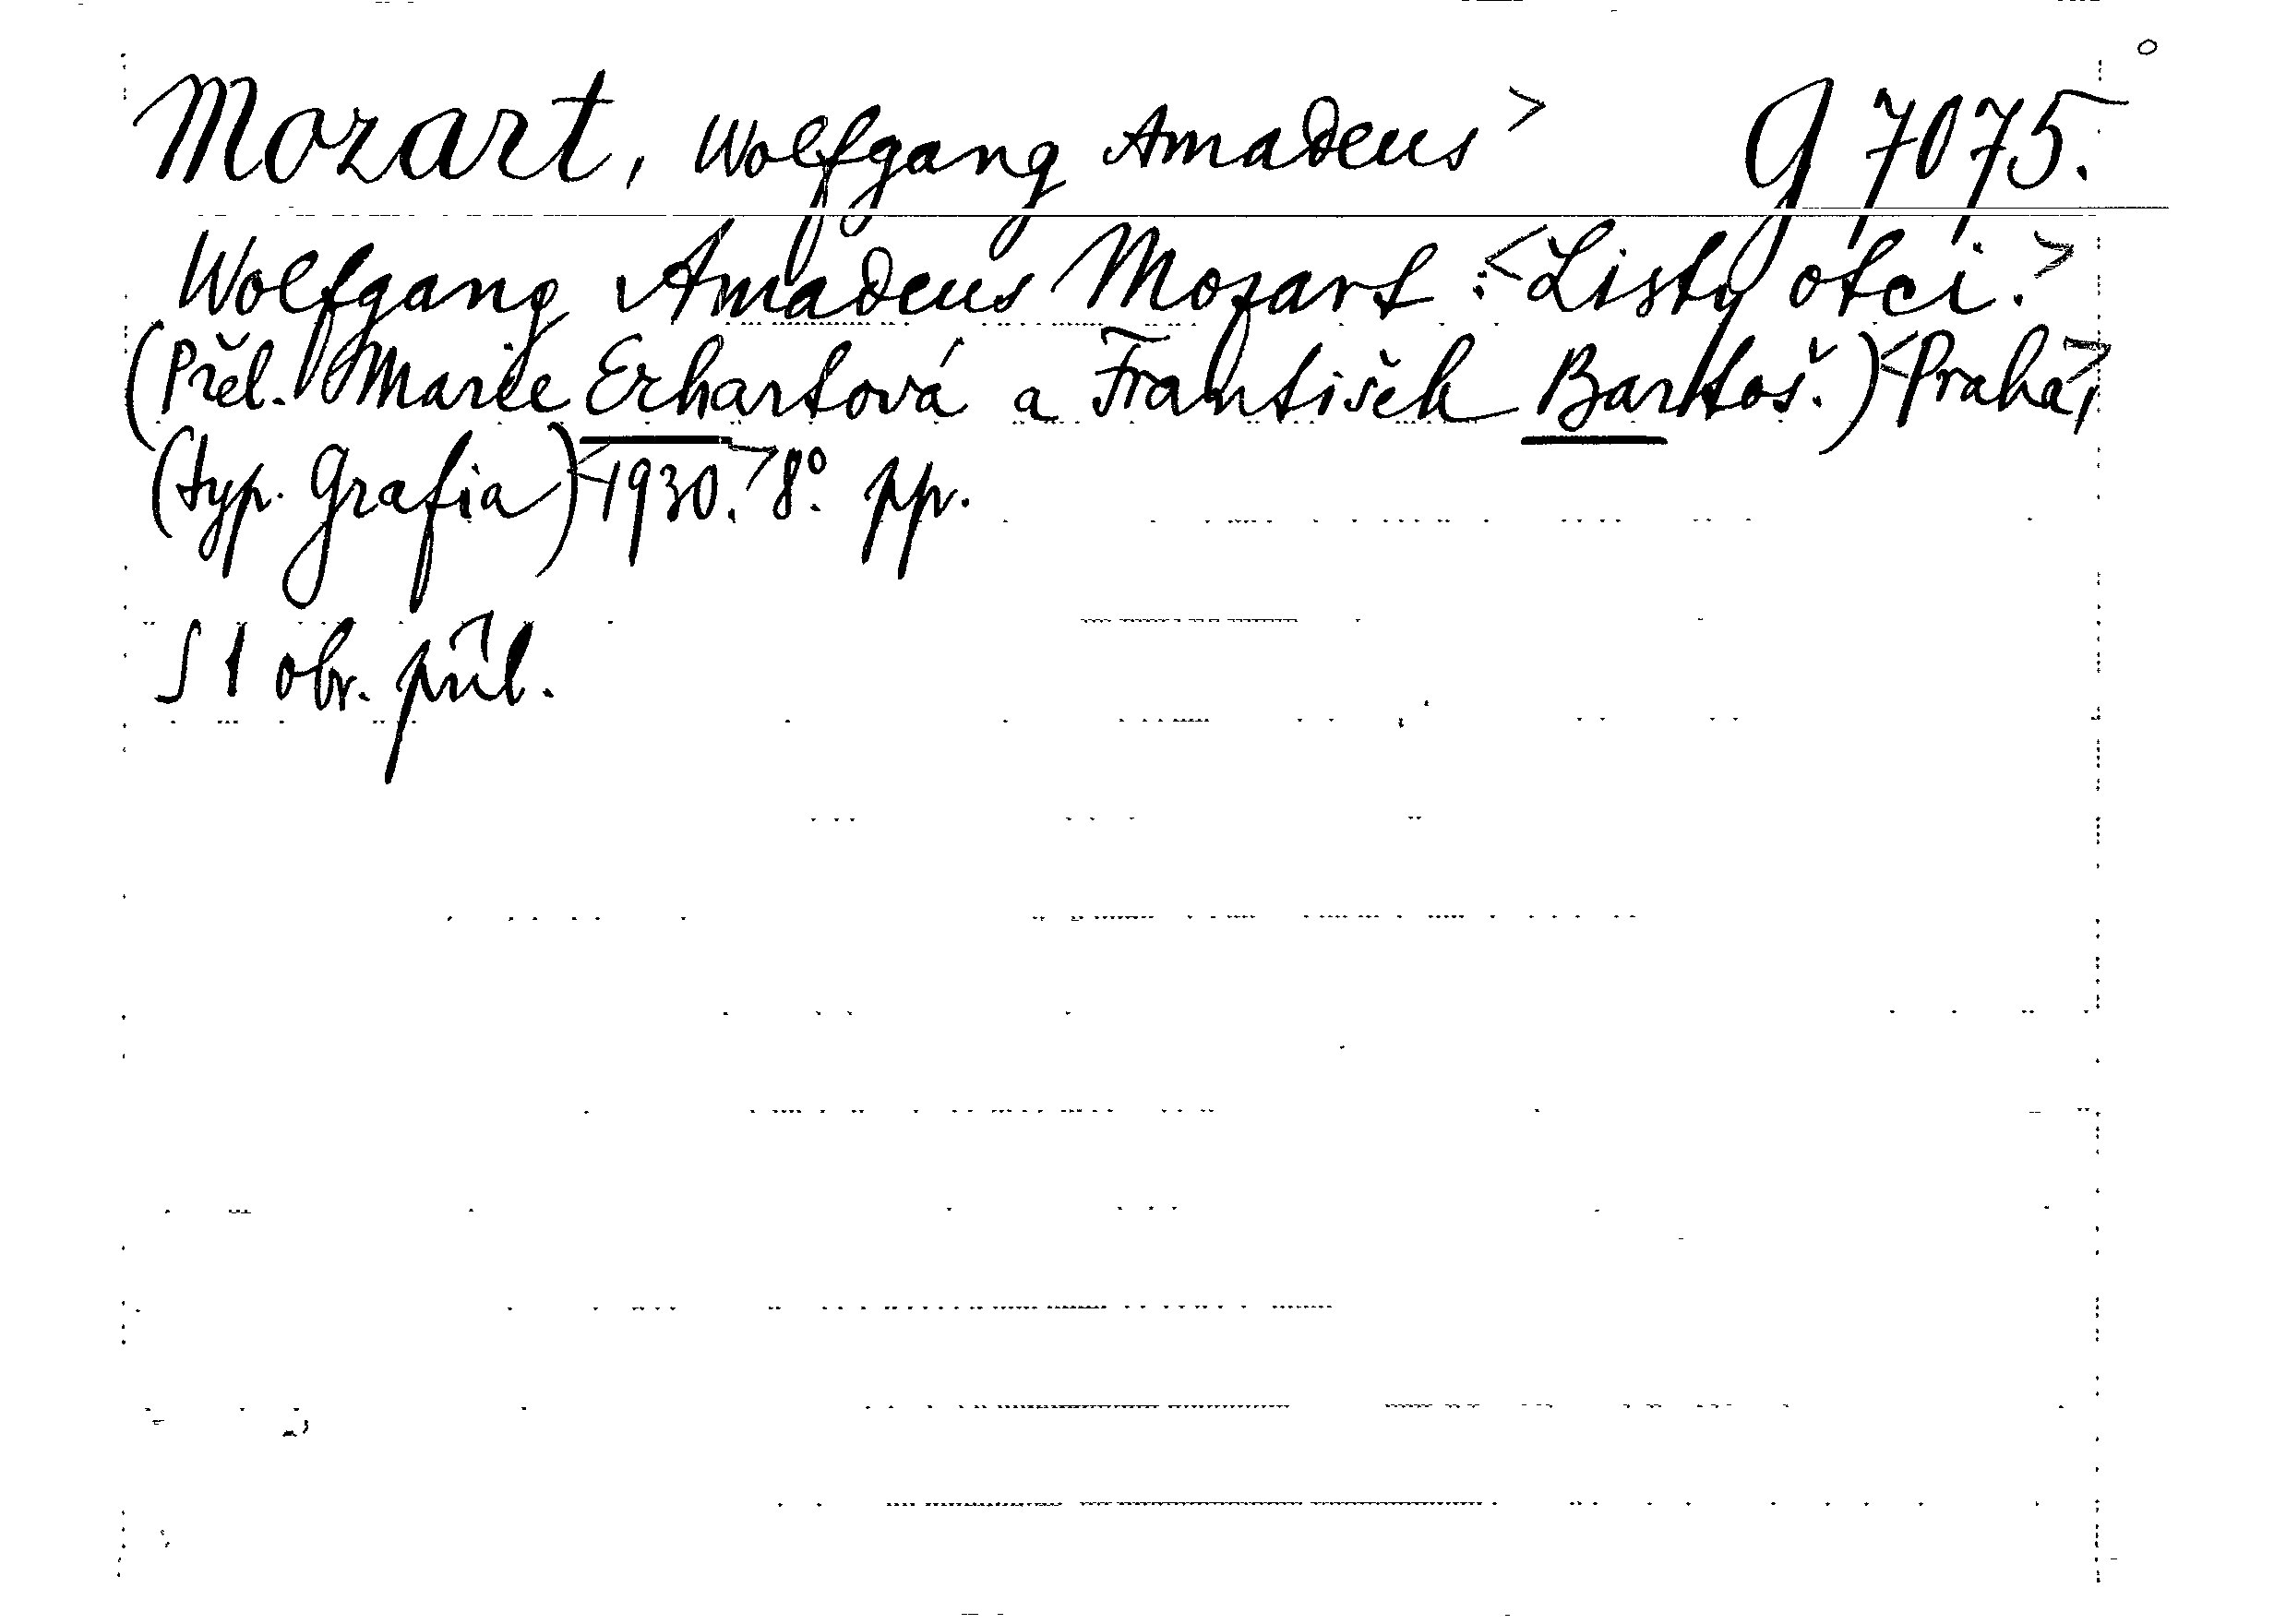 Mozart, Wolfgang Amadeus> G 7075.
Wolfgang Amadeus Mozart :<Listy otci.>
(Přel. Marie Erhartová a František Bartoš.)<Praha,>
(typ. Grafia)<1930.> 8°. pp.
S 1 obr. příl.